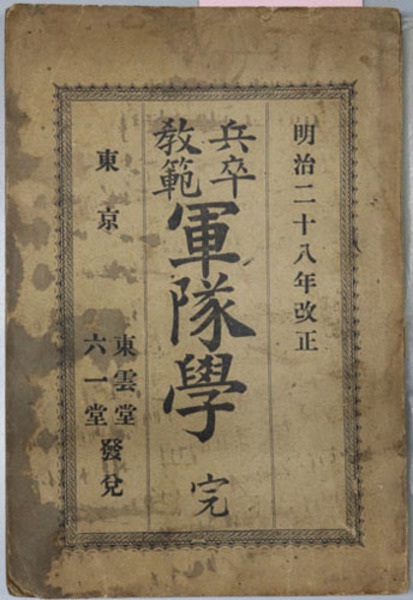 明治二十八年改正
兵卒
教範
軍隊學
完
東京
東雲堂
六一堂
發兌